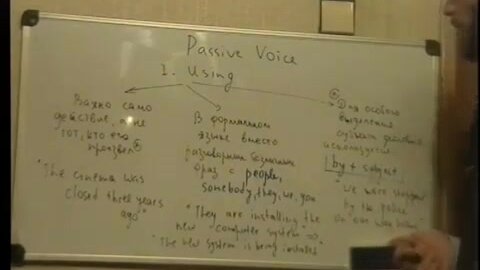 Passive Voice
I. Using
Важно само
действие, а не
тот, кто его
произвел
"The cinema was
closed three years
ago"
В формальном
языке вместо
разговорных безличных
фраз с people,
somebody, they, we, you
"They are installing the
new computer system" ⇒
"The new system is being installed"
Для особого
выделения
субъект действия
используется
by + subject
"We were stopped
by the police
on our way home"